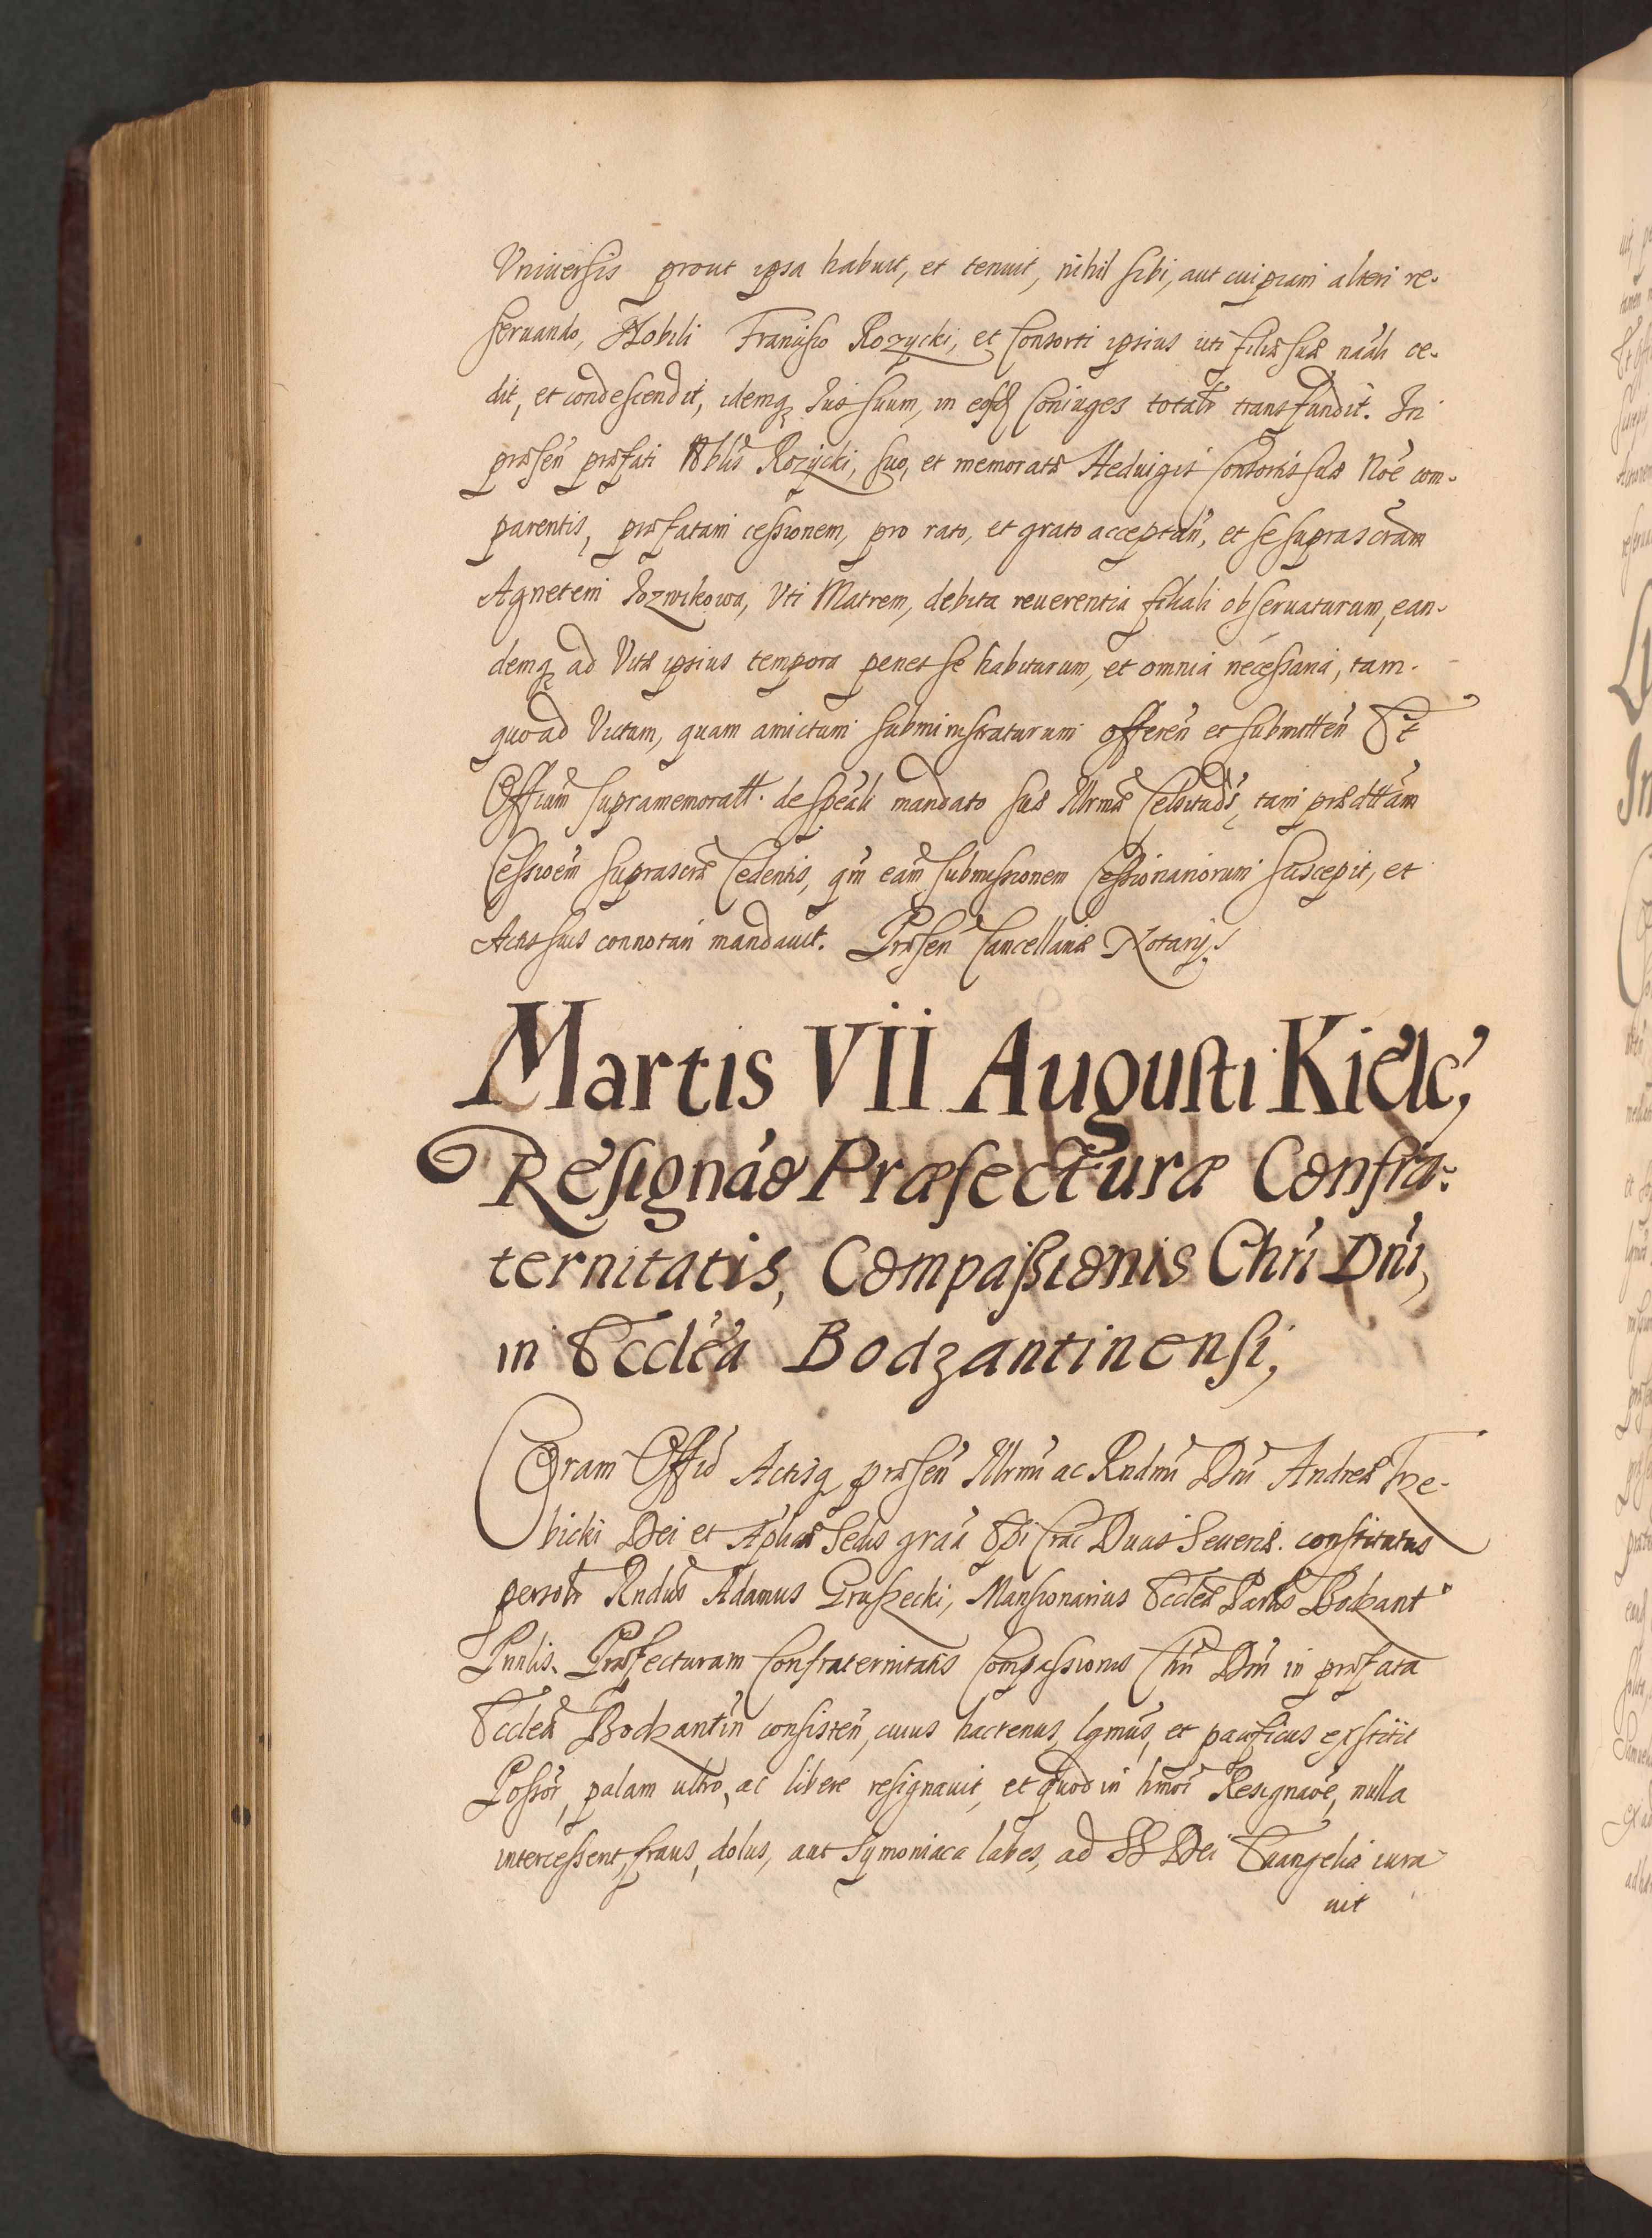 Vniuersis prout ipsa habuit, et tenuit, nihil sibi, aut cuipiam alteri re-
seruando, Nobili Francisco Rozycki, et Consorti ipsius uti filiæ suæ nãli ce-
dit, et condescendit, idemq Ius suum, in eosd Coniuges totalr transfundit. In
præsen præfati Nblis Rozycki, suo, et memoratæ Heduigis Consortis suæ Noe com-
parentis, præfatam cessionem, pro rato, et grato acceptan, et se suprascram
Agnetem Jozwikowa, Vti Matrem, debita reuerentia filiali obseruaturum, ean-
demq ad Vitæ ipsius tempora penes se habiturum, et omnia necessaria, tam
quoad Victum, quam amictum subministraturum offeren et submitten Et
Officium supramemoratt. de speali mandato suæ Illrmæ Celsitudis, tam prædttam
Cessioem suprascræ Cedentis, qm eam submissionem Cessionariorum suscepit, et
Actis suis connotari mandauit. Præsen Cancellariæ Notarij.
Martis VII Augusti Kielc,
Resignáo Præfecturæ Confra-
ternitatis, Compassionis Chri Dni,
in Ecclea Bodzantinensi,
Coram Offio Actisq præsen Illrmi ac Rndmi Dni Andreæ Trze-
bicki Dei et Aplicæ Sedis graa Epi Crac Ducis Seueriæ. constitutus
personr Rndus Adamus Gruszecki, Mansionarius Eccleæ Parlis Bodzant
Pnnlis. Præfecturam Confraternitatis Compassionis Chri Dni in præfata
Ecclea Bodzantin consisten, cuius hactenus, lgmus, et pacificus exstitit
Possor, palam ultro, ac libere resignauit, et quod in hmoi Resignaoe, nulla
intercesserit, fraus, dolus, aut symoniaca labes, ad SS Dei Euangelia iura
uit